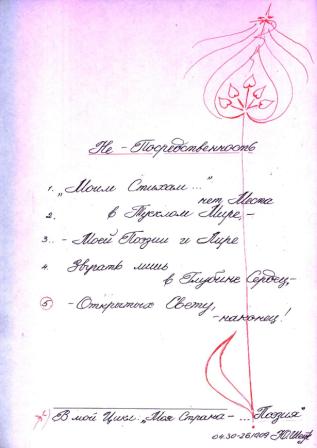 Не - Посредственность
1. „Моим Стихам..."
нет Места
2. в Тусклом Мире,-
3.. - Моей Поэзии и Лире
4. Звучать лишь
в Глубине Сердец,-
5 -Открытых Свету,
-наконец!
В мой Цикл: „Моя Страна - ...Поэзия"